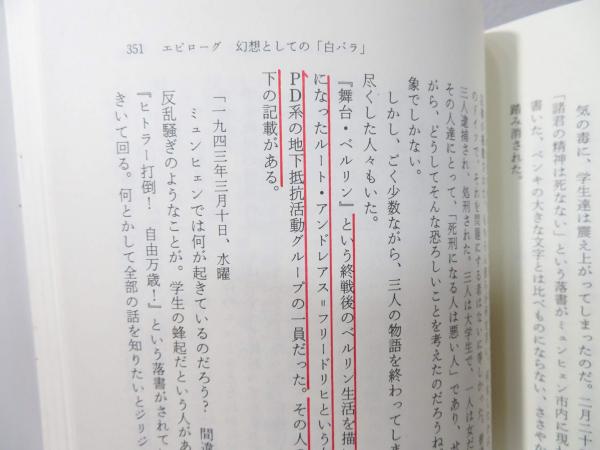 気の毒に、学生達は震え上がってしまったのだ。二月二十
「諸君の精神は死なない」という落書がミュンヒェン市内に現
書いた、ペンキの大きな文字とは比べものにならない、ささや
踏み消された。
351 エピローグ 幻想としての「白バラ」
それを問題にする者はないに等しかった。
三人逮捕され、処刑された。三人は大学生で、一人は女だ
その人達にとって、「死刑になる人は悪い人」であり、
がら、どうしてそんな恐ろしいことを考えたのだろうね
象でしかない。
しかし、ごく少数ながら、三人の物語を終わってしま
尽くした人々もいた。
『舞台・ベルリン』という終戦後のベルリン生活を描
になったルート・アンドレアス＝フリードリヒという
PD系の地下抵抗活動グループの一員だった。その人
下の記載がある。
「一九四三年三月十日、水曜
ミュンヒェンでは何が起きているのだろう？ 間違
反乱騒ぎのようなことが。学生の蜂起だという人があ
『ヒトラー打倒！ 自由万歳！』という落書がされて
きいて回る。何とかして全部の話を知りたいとジリジ